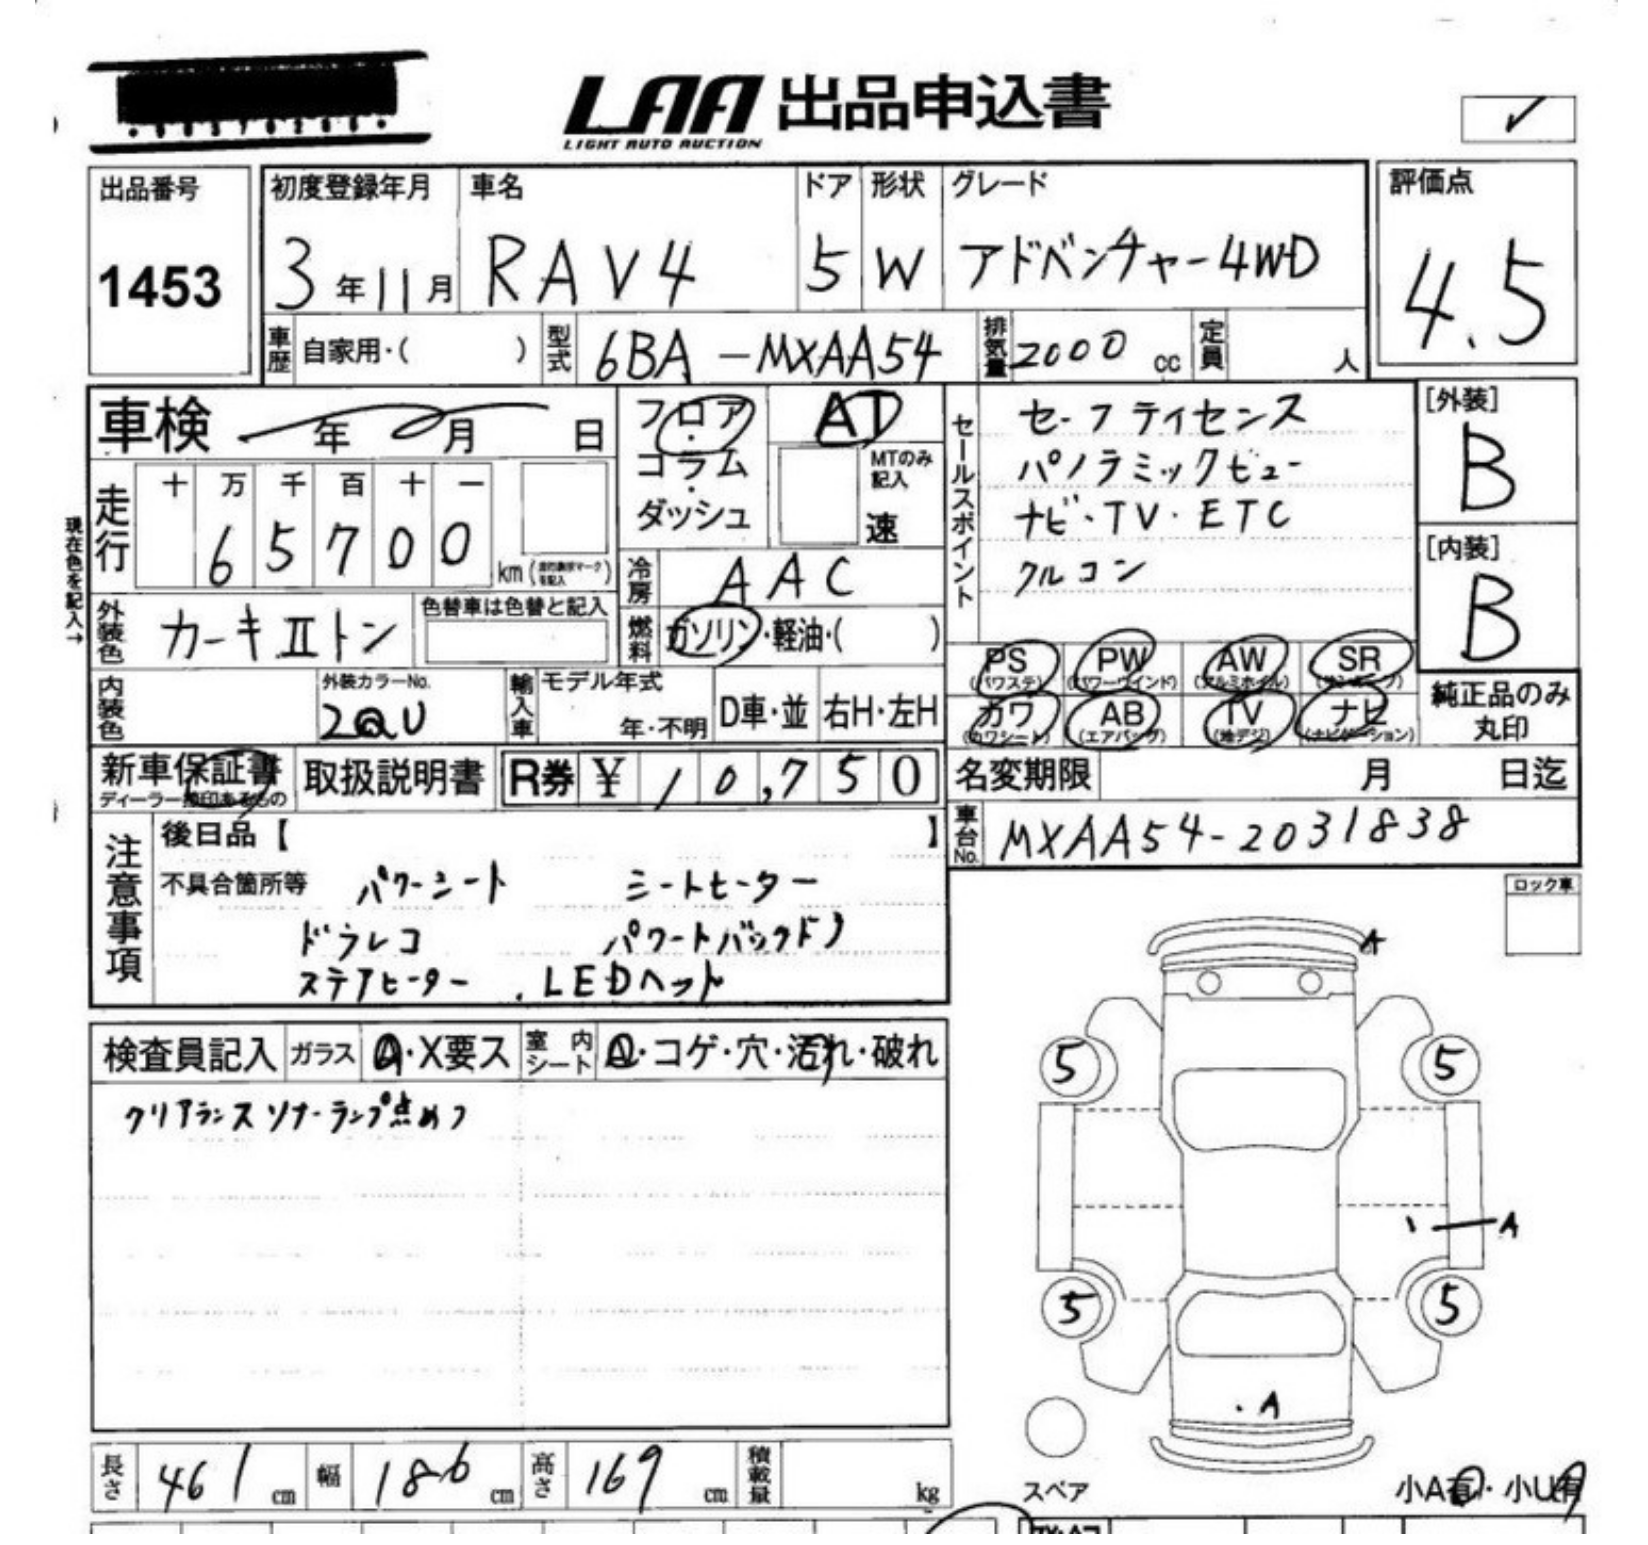 LAA 出品申込書
LIGHT AUTO AUCTION
出品番号
1453
初度登録年月
3年11月
車名
RAV4
ドア
5
形状
W
グレード
アドベンチャー4WD
評価点
4.5
車歴
自家用・( )
型式
6BA-MXAA54
排気量
2000 cc
定員
人
車検 年 月 日
フロア
コラム
ダッシュ
AT
MTのみ記入
速
セールスポイント
セーフティセンス
パノラミックビュー
ナビ・TV・ETC
クルコン
[外装]
B
[内装]
B
現在色を記入→
走行
十 万 千 百 十 一
65700
km
冷房
AAC
外装色
カーキⅡトン
色替車は色替と記入
燃料
ガソリン・軽油・( )
PS
(パワステ)
PW
(パワーウインド)
AW
(アルミホイル)
SR
(サンルーフ)
カワ
(カワシート)
AB
(エアバッグ)
TV
(地デジ)
ナビ
(ナビゲーション)
純正品のみ
丸印
内装色
外装カラーNo.
2QU
輸入車
モデル年式
年・不明
D車・並
右H・左H
新車保証書
取扱説明書
R券 ¥ 10,750
名変期限 月 日迄
車台No.
MXAA54-2031838
注意事項
後日品【 】
不具合箇所等
パワーシート シートヒーター
ドラレコ パワートバックドア
ステアヒーター . LEDヘッド
ロック車
検査員記入
ガラス
A・X要ス
室内シート
A・コゲ・穴・汚れ・破れ
クリアランスソナーランプ点めつ
A
5 5
A
5 5
A
スペア
小A有・小U有
長さ 461 cm
幅 186 cm
高さ 169 cm
積載量 kg